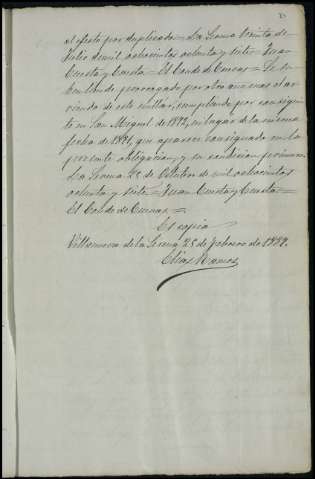 al efecto por duplicado = La Serna Treinta de
Julio de mil ochocientos ochenta y siete = Juan
Cuesta y Cuesta = El Conde de Cuevas = Se en-
tiende prorrogado por otro año mas el ar-
riendo de este millar, cumpliendo por consiguien-
te en San Miguel de 1892, en lugar de la misma
fecha de 1891 que aparece consignado en la
presente obligacion, y su condicion primera
La Serna 25 de Octubre de mil ochocientos
ochenta y siete = Juan Cuesta y Cuesta =
El Conde de Cuevas =
Es copia
Villanueva de la Serena 25 de Febrero de
Elias Ramos